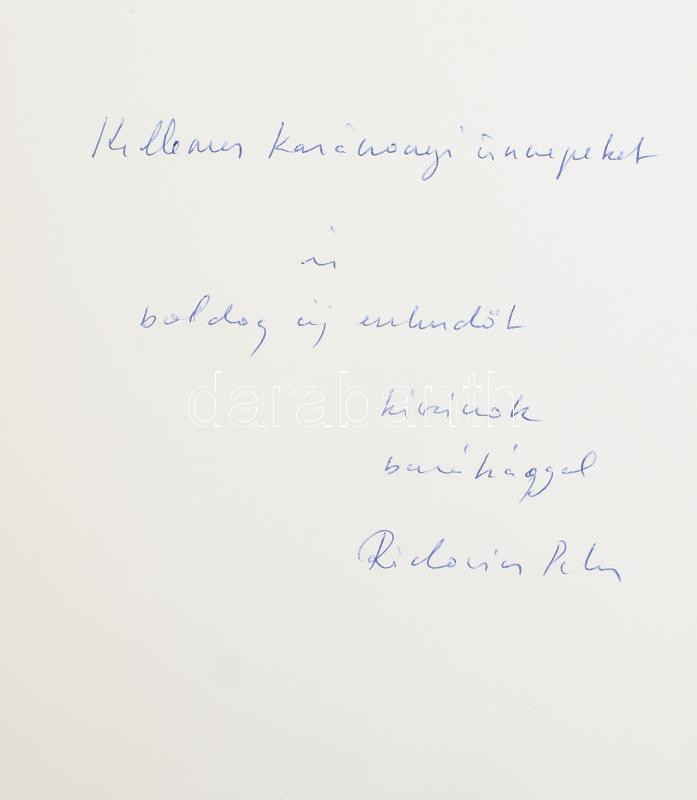 Kellemes karácsonyi ünnepeket
és
boldog új esztendőt
darabanth
kívánok
barátsággal
Péter